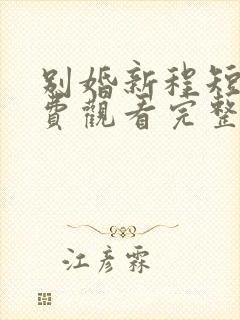 別婚新程短
費觀看完整
江彦霖